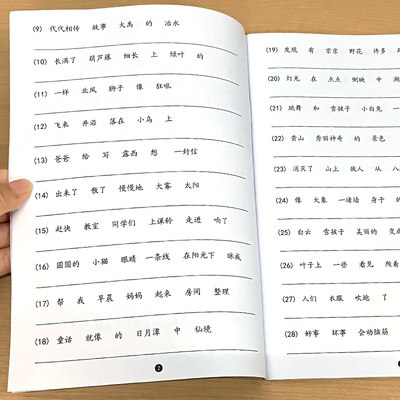 (9) 代代相传 故事 大禹 的 治水
(10) 长满了 葫芦藤 细长 上 绿叶 的
(11) 一样 北风 狮子 像 狂吼
(12) 飞来 井沿 落在 小鸟 上
(13) 爸爸 给 写 露西 想 一封信
(14) 出来了 散了 慢慢地 大雾 太阳
(15) 赶快 教室 同学们 上课铃 走进 响了
(16) 圆圆的 小猫 眼睛 一条线 在阳光下 眯成
(17) 帮 我 早晨 妈妈 起来 房间 整理
(18) 童话 就像 的 日月潭 中 仙境
2
(19) 发现 有 野花 许多
(20) 灯光 在 点点 倒映 中 湖
(21) 跳舞 和 雪孩子 小白兔
(22) 黄山 秀丽神奇 的 景色
(23) 消灭了 山上 敌人 从 八
(24) 像 大象 一道墙 身子 的
(25) 白云 雪孩子 美丽的 变成
(26) 叶子上 一些 看见 爬着
(27) 人们 衣服 吹跑 了
(28) 好事 坏事 会动脑筋